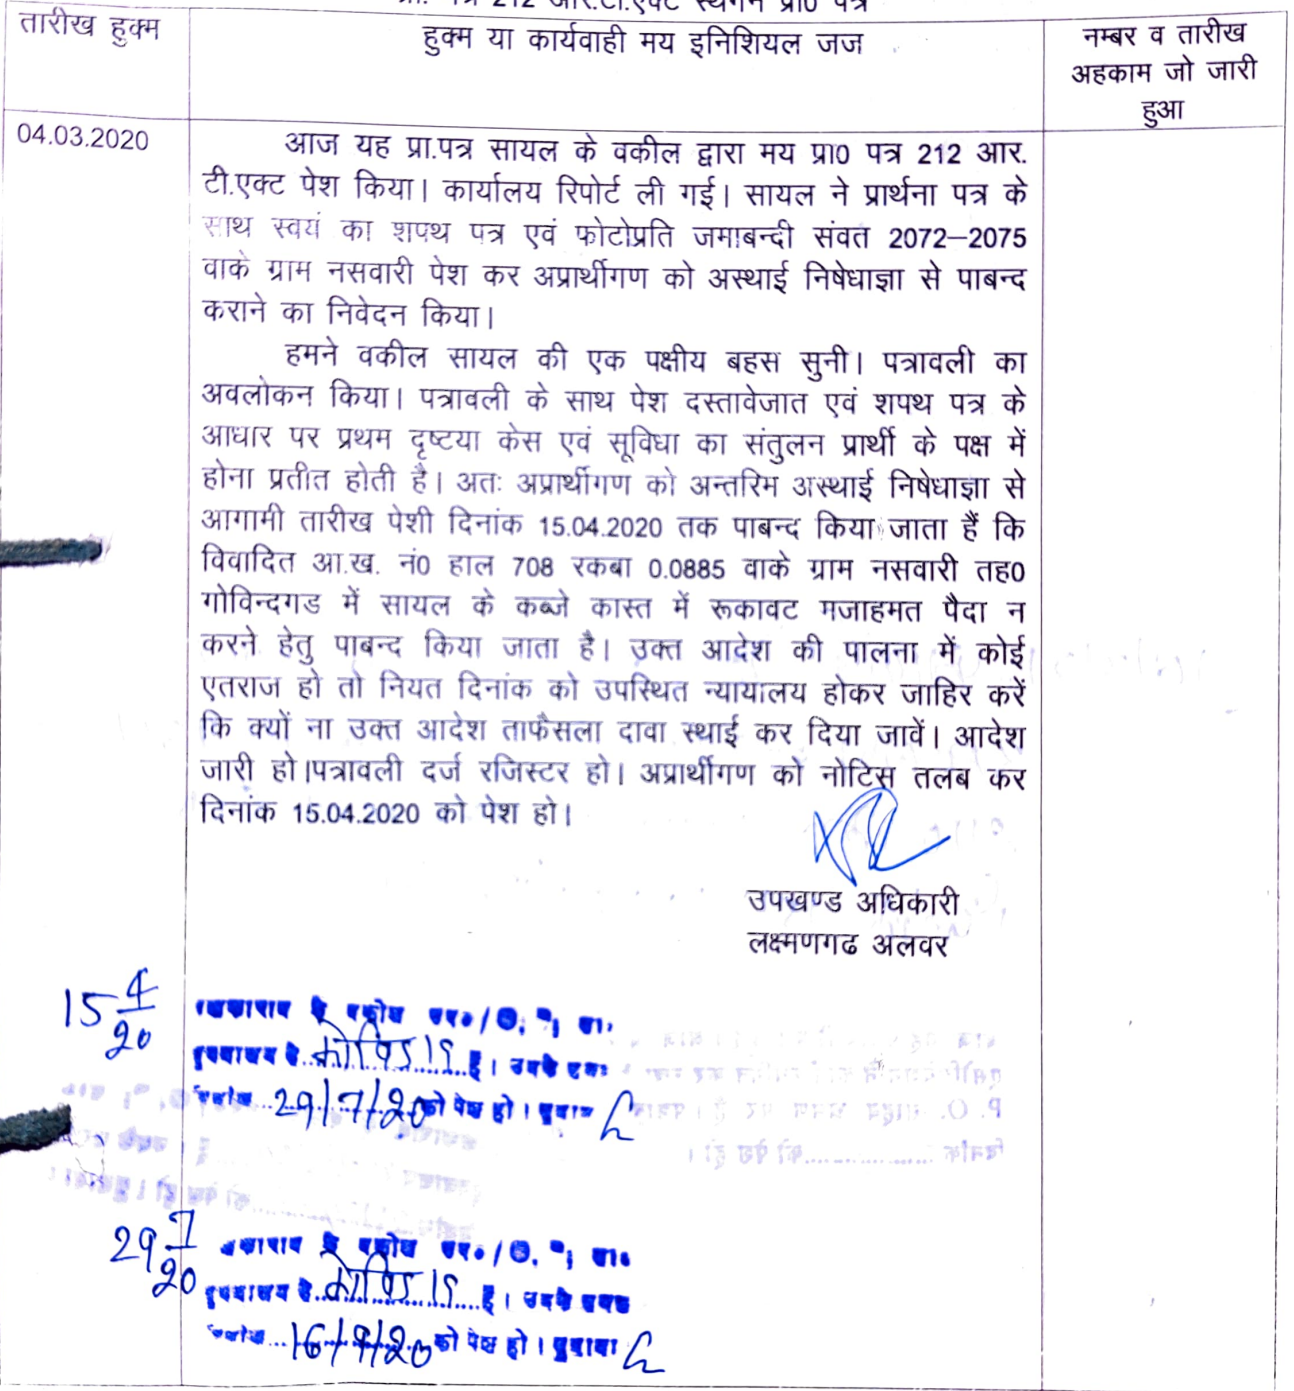 प्रा. पत्र 212 आर.टी.एक्ट स्थगन प्रा0 पत्र
तारीख हुक्म
हुक्म या कार्यवाही मय इनिशियल जज
नम्बर व तारीख
अहकाम जो जारी
हुआ
04.03.2020
आज यह प्रा.पत्र सायल के वकील द्वारा मय प्रा0 पत्र 212 आर.
टी.एक्ट पेश किया। कार्यालय रिपोर्ट ली गई। सायल ने प्रार्थना पत्र के
साथ स्वयं का शपथ पत्र एवं फोटोप्रति जमाबन्दी संवत 2072–2075
वाके ग्राम नसवारी पेश कर अप्रार्थीगण को अस्थाई निषेधाज्ञा से पाबन्द
कराने का निवेदन किया।
हमने वकील सायल की एक पक्षीय बहस सुनी। पत्रावली का
अवलोकन किया। पत्रावली के साथ पेश दस्तावेजात एवं शपथ पत्र के
आधार पर प्रथम दृष्टया केस एवं सूविधा का संतुलन प्रार्थी के पक्ष में
होना प्रतीत होती है। अतः अप्रार्थीगण को अन्तरिम अस्थाई निषेधाज्ञा से
आगामी तारीख पेशी दिनांक 15.04.2020 तक पाबन्द किया जाता हैं कि
विवादित आ.ख. नं0 हाल 708 रकबा 0.0885 वाके ग्राम नसवारी तह0
गोविन्दगड में सायल के कब्जे कास्त में रूकावट मजाहमत पैदा न
करने हेतु पाबन्द किया जाता है। उक्त आदेश की पालना में कोई
एतराज हो तो नियत दिनांक को उपस्थित न्यायालय होकर जाहिर करें
कि क्यों ना उक्त आदेश ताफैसला दावा स्थाई कर दिया जावें। आदेश
जारी हो।पत्रावली दर्ज रजिस्टर हो। अप्रार्थीगण को नोटिस तलब कर
दिनांक 15.04.2020 को पेश हो।
उपखण्ड अधिकारी
लक्ष्मणगढ अलवर
15 4/20
कोविड 19 है।
29/7/20 को पेश हो।
29 7/20
कोविड 19 है।
16/9/20 को पेश हो।